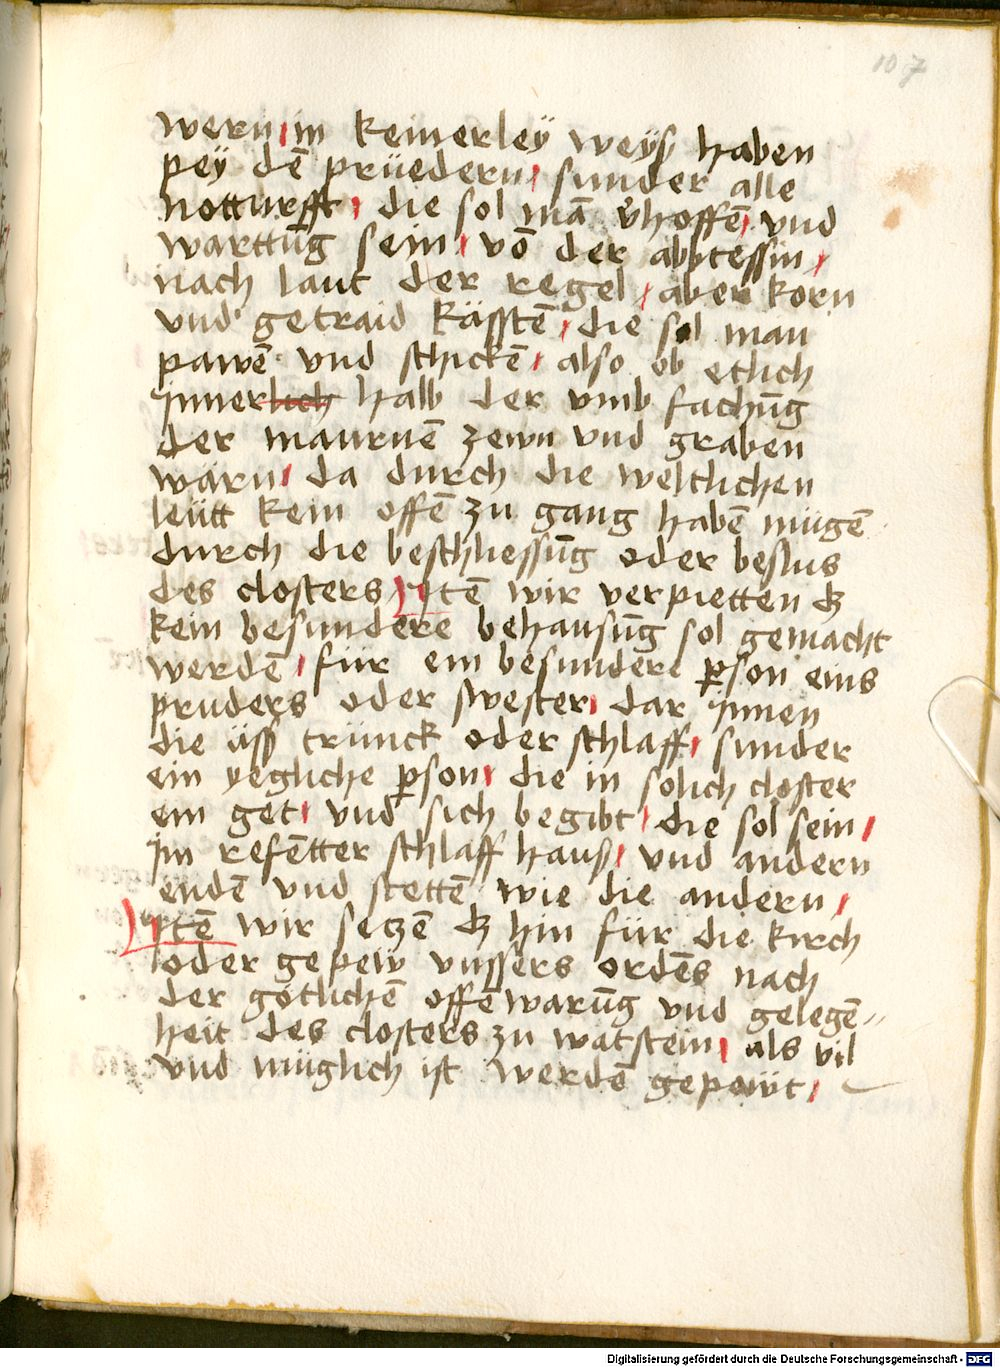 107
wern in keinerley weyß haben
pey dē prüedern sunder alle
notturfft die sol mā vhoffē vnd
warttūg sein vō der abbtessin
nach laut der regel aber korn
vnd getraid kässtē die sol man
pawē vnd schickē also ob etlich
jnnerlich halb der vmb fachūg
der maurnē zewn vnd graben
wärn da durch die weltlichen
leütt kein offē zu gang habē mügē
durch die beschliessūg oder beslus
des closters Jtē wir verpietten dz
kein besundere behausūg sol gemacht
werdē für ein besundere pson eins
pruders oder swester dar jnnen
die äss trünck oder schlaff sunder
ein yegliche pson die in solich closter
ein get vnd sich begibt die sol sein
jm refētter schlaff hauß vnd andern
endē vnd stettē wie die andern
Jtē wir seczē dz hin für die kirch
oder gepew vnssers ordēs nach
der götlichē offēwarūg vnd gelegē
heit des closters zu watstein als vil
vnd müglich ist werdē gepawt
Digitalisierung gefördert durch die Deutsche Forschungsgemeinschaft - DFG